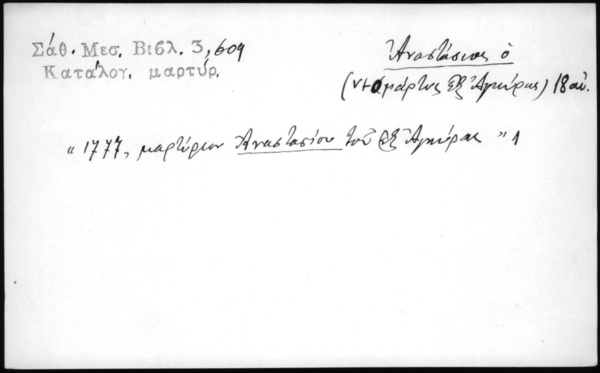 Σάθ. Μεσ. Βιβλ. 3, 609
Καταλογ. μαρτύρ.
Ἀναστάσιος ὁ
(νεομάρτυς ἐξ Ἀγκύρας) 18 αἰ.
"1777, μαρτύριον Ἀναστασίου τοῦ ἐξ Ἀγκύρας" 1